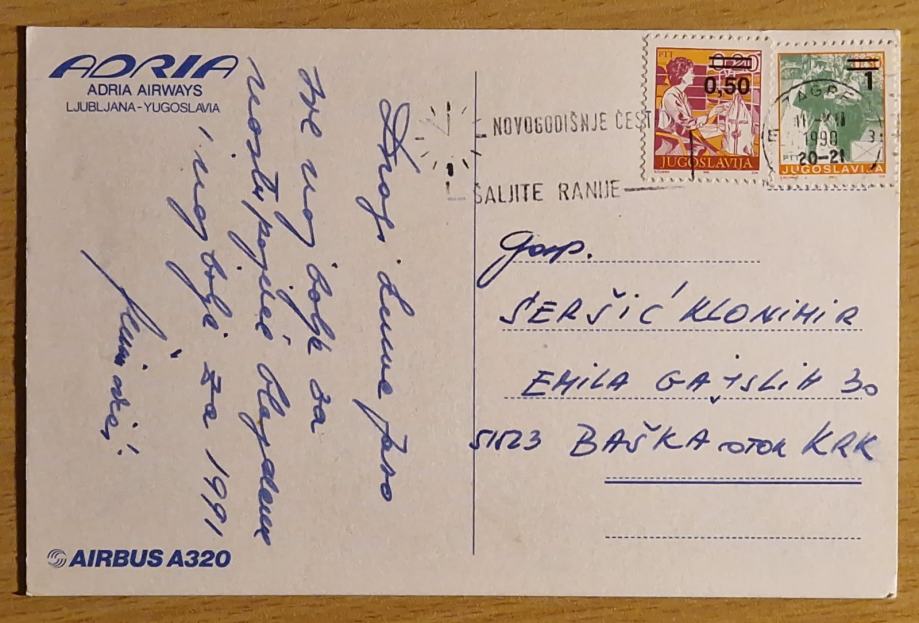 ADRIA
ADRIA AIRWAYS
LJUBLJANA-YUGOSLAVIA
Dragi
sve naj bolje za
i naj bolje za 1991
AIRBUS A320
NOVOGODIŠNJE ČEST
ŠALJITE RANIJE
PTT
0,50
JUGOSLAVIJA
1
PTT
JUGOSLAVIJA
ZAGR
1990
20-21
Gosp.
ŠERŠIĆ KLONIMIR
EMILA GAJSLIH 30
51523 BAŠKA OTOK KRK